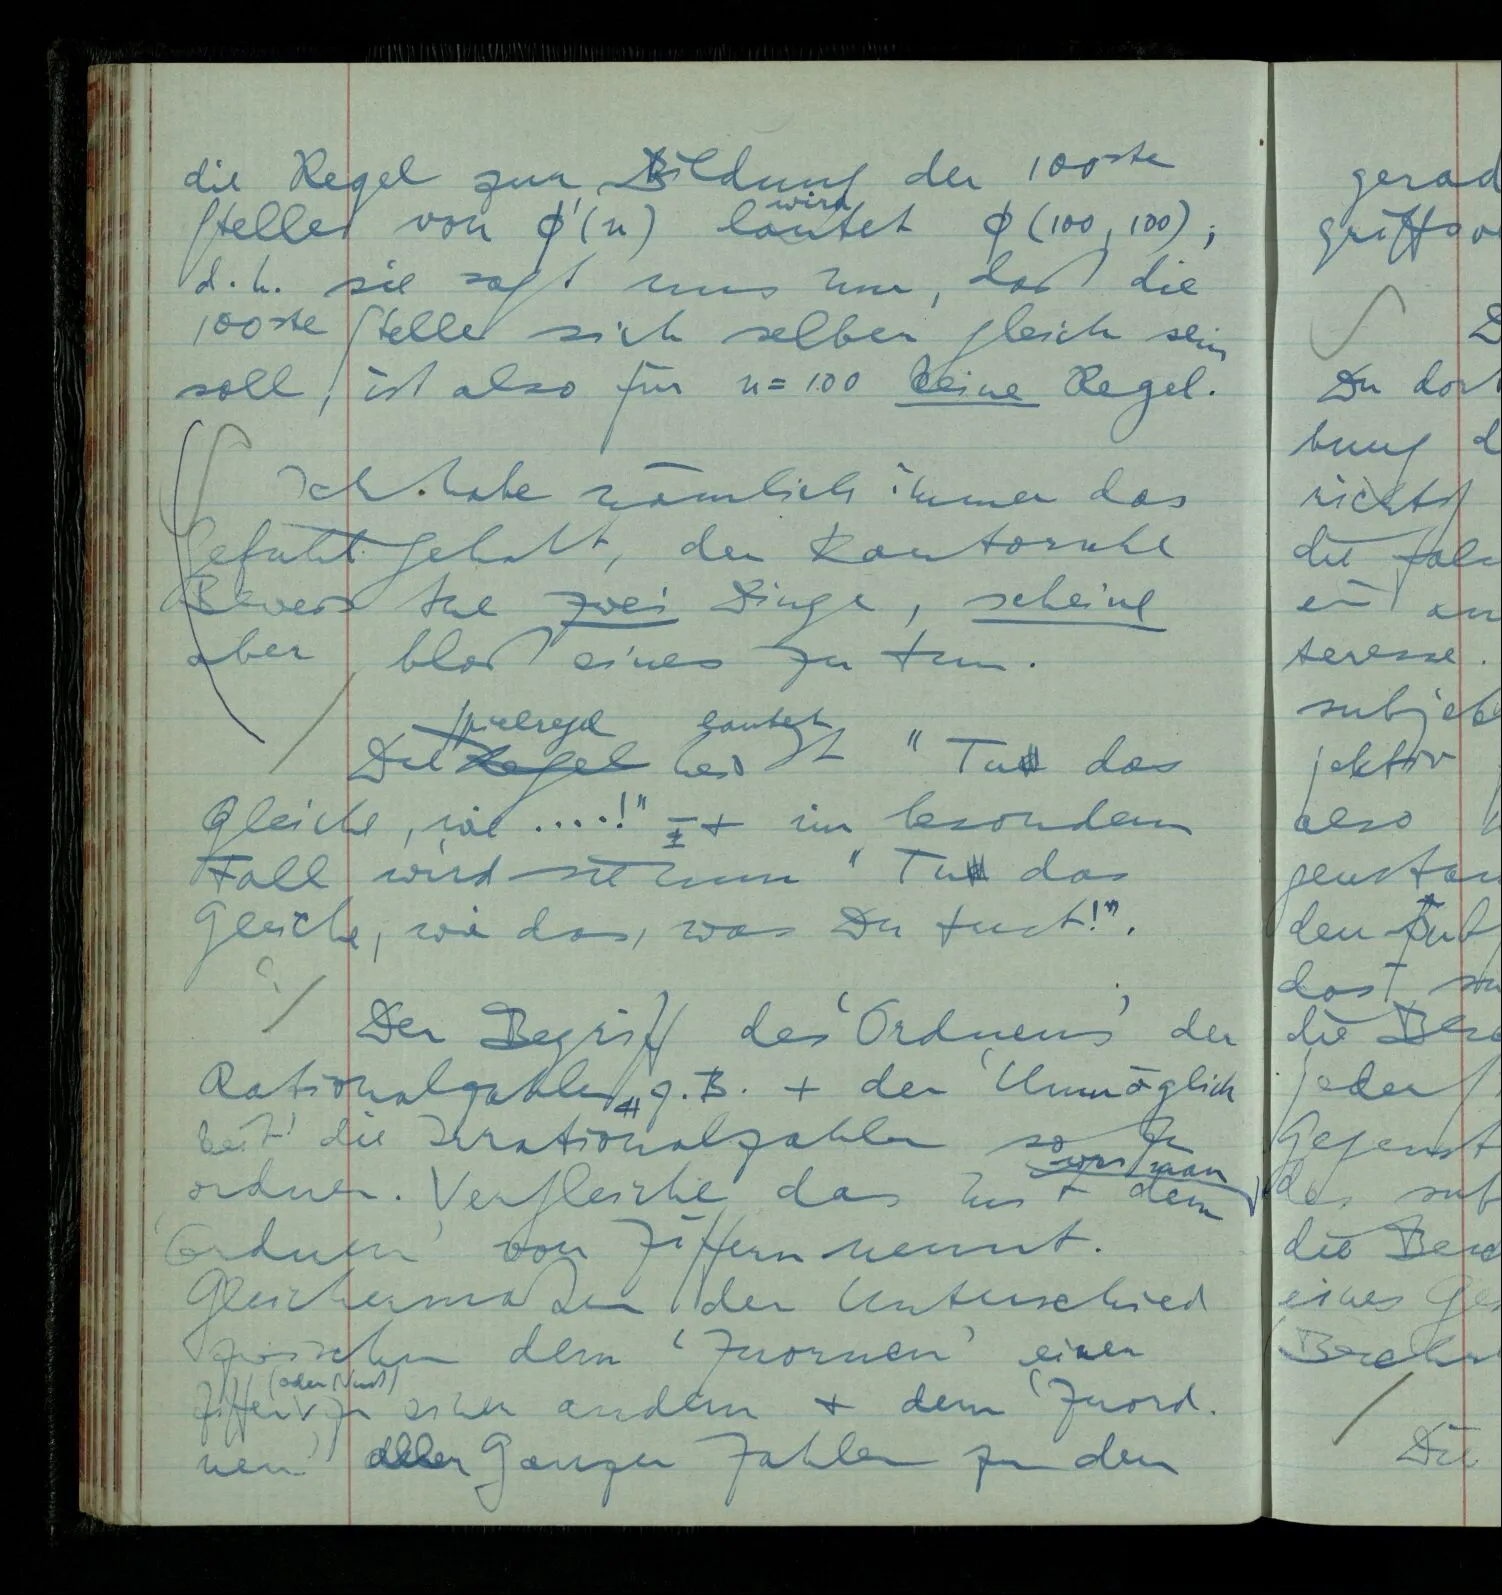 die Regel zur Bildung der 100ste
Stelle von φ'(n) wird lautet φ(100, 100);
d.h. sie sagt uns nur, daß die
100ste Stelle sich selber gleich sein
soll, ist also für n = 100 keine Regel.
Ich habe nämlich immer das
Gefühl gehabt, der Kantorsche
Beweis tue zwei Dinge, scheine
aber bloß eines zu tun.
Spielregel lautet
Die Regel heißt "Tu das
Gleiche, wie ....!" + im besondern
Fall wird sie nun "Tu das
Gleiche, wie das, was Du tust!".
Der Begriff des 'Ordnens' der
Rationalzahlen z.B. + der 'Unmöglich
keit' die Irrationalzahlen so zu
ordnen. Vergleiche das mit dem
was man
'Ordnen' von Ziffern nennt.
Gleichermaßen der Unterschied
zwischen dem 'Zuornen' einer
(oder Nuß)
Ziffer zu einer andern + dem 'Zuord
nen' aller Ganzen Zahlen zu den
gerad
griffsv
D
Du dort
bung d
richts
die fal
teresse.
subjek
jektiv
also
genstan
die Be
jeder
Gegenst
des sub
die
eines Ge
Die